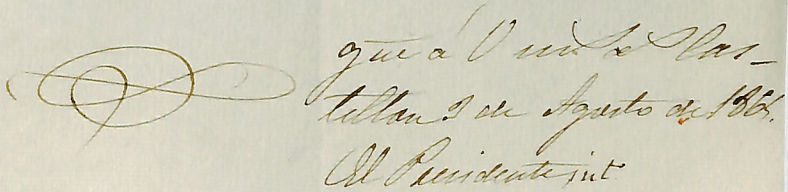 que á V m S Cas-
tellon 3 de Agosto de 186
El Presidente int.